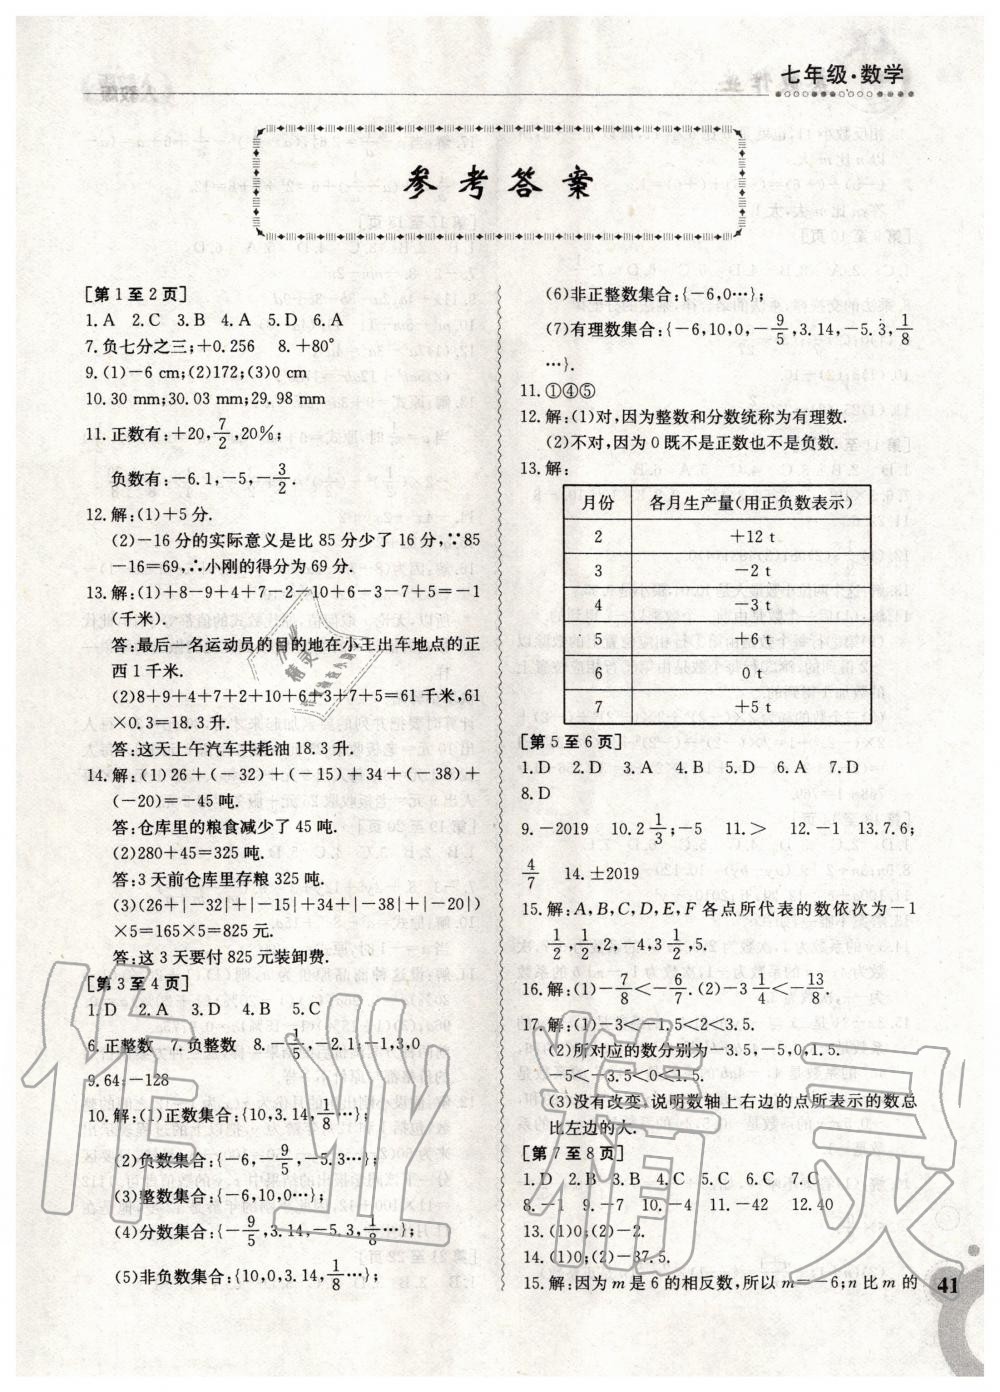 七年级·数学
参考答案
[第1至2页]
1.A 2.C 3.B 4.A 5.D 6.A
7.负七分之三;+0.256 8.+80°
9.(1)-6 cm;(2)172;(3)0 cm
10.30 mm;30.03 mm;29.98 mm
11.正数有:+20,7/2,20%;
负数有:-6.1,-5,-3/2.
12.解:(1)+5分.
(2)-16分的实际意义是比85分少了16分,∵85
-16=69,∴小刚的得分为69分.
13.解:(1)+8-9+4+7-2-10+6-3-7+5=-1
(千米).
答:最后一名运动员的目的地在小王出车地点的正
西1千米.
(2)8+9+4+7+2+10+6+3+7+5=61千米,61
×0.3=18.3升.
答:这天上午汽车共耗油18.3升.
14.解:(1)26+(-32)+(-15)+34+(-38)+
(-20)=-45吨.
答:仓库里的粮食减少了45吨.
(2)280+45=325吨.
答:3天前仓库里存粮325吨.
(3)(26+|-32|+|-15|+34+|-38|+|-20|)
×5=165×5=825元.
答:这3天要付825元装卸费.
[第3至4页]
1.D 2.A 3.D 4.B 5.C
6.正整数 7.负整数 8.-1/5,-2.1;-1,3,0
9.64;-128
10.解:(1)正数集合:{10,3.14,1/8…};
(2)负数集合:{-6,-9/5,-5.3…};
(3)整数集合:{-6,10,0…};
(4)分数集合:{-9/5,3.14,-5.3,1/8…};
(5)非负数集合:{10,0,3.14,1/8…};
(6)非正整数集合:{-6,0…};
(7)有理数集合:{-6,10,0,-9/5,3.14,-5.3,1/8
…}.
11.①④⑤
12.解:(1)对,因为整数和分数统称为有理数.
(2)不对,因为0既不是正数也不是负数.
13.解:
月份 各月生产量(用正负数表示)
2 +12 t
3 -2 t
4 -3 t
5 +6 t
6 0 t
7 +5 t
[第5至6页]
1.D 2.D 3.A 4.B 5.D 6.A 7.D
8.D
9.-2019 10.2 1/3;-5 11.> 12.-1 13.7.6;
4/7 14.±2019
15.解:A,B,C,D,E,F各点所代表的数依次为-1
1/2,1/2,2,-4,3 1/2,5.
16.解:(1)-7/8<-6/7.(2)-3 1/4<-13/8.
17.解:(1)-3<-1.5<2<3.5.
(2)所对应的数分别为-3.5,-5,0,1.5.
-5<-3.5<0<1.5.
(3)没有改变,说明数轴上右边的点所表示的数总
比左边的大.
[第7至8页]
1.D 2.B 3.D 4.C 5.C 6.C 7.C
8.-1 9.-7 10.-4 11.-42 12.40
13.(1)0;(2)-2.
14.(1)0;(2)-37.5.
15.解:因为m是6的相反数,所以m=-6;n比m的
41
作业精灵